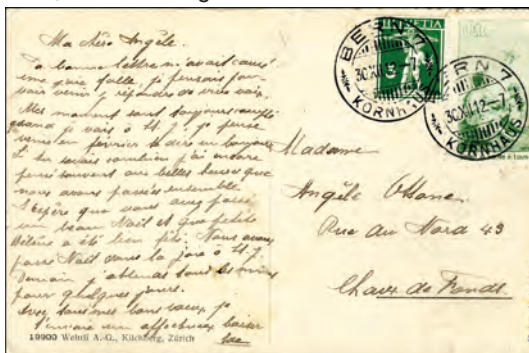 Ma chère Angèle.
Ta bonne lettre m'avait causé
une joie folle, je pensais
venir y répondre de vive voix.
Mes moments sont toujours
quand je vais à
en février te dire un bonjour
tu sais combien j'ai encore
pensé souvent aux belles heures que
nous avons passées ensemble
J'espère que vous avez passé
un beau Noël et que petite
Hélène a été bien fêtée. Nous avons
passé Noël dans la joie à
Demain j'attends tous les miens
pour quelques jours.
Avec tous mes bons vœux je
t'envoie un affectueux baiser
19900 Wehrli A.-G., Kilchberg, Zürich
HELVETIA
5
BERN 7
30 XII 12 - 7
KORNHAUS
BERN 7
30 XII 12 - 7
KORNHAUS
Madame
Angèle
Rue du Nord 43
Chaux de Fonds